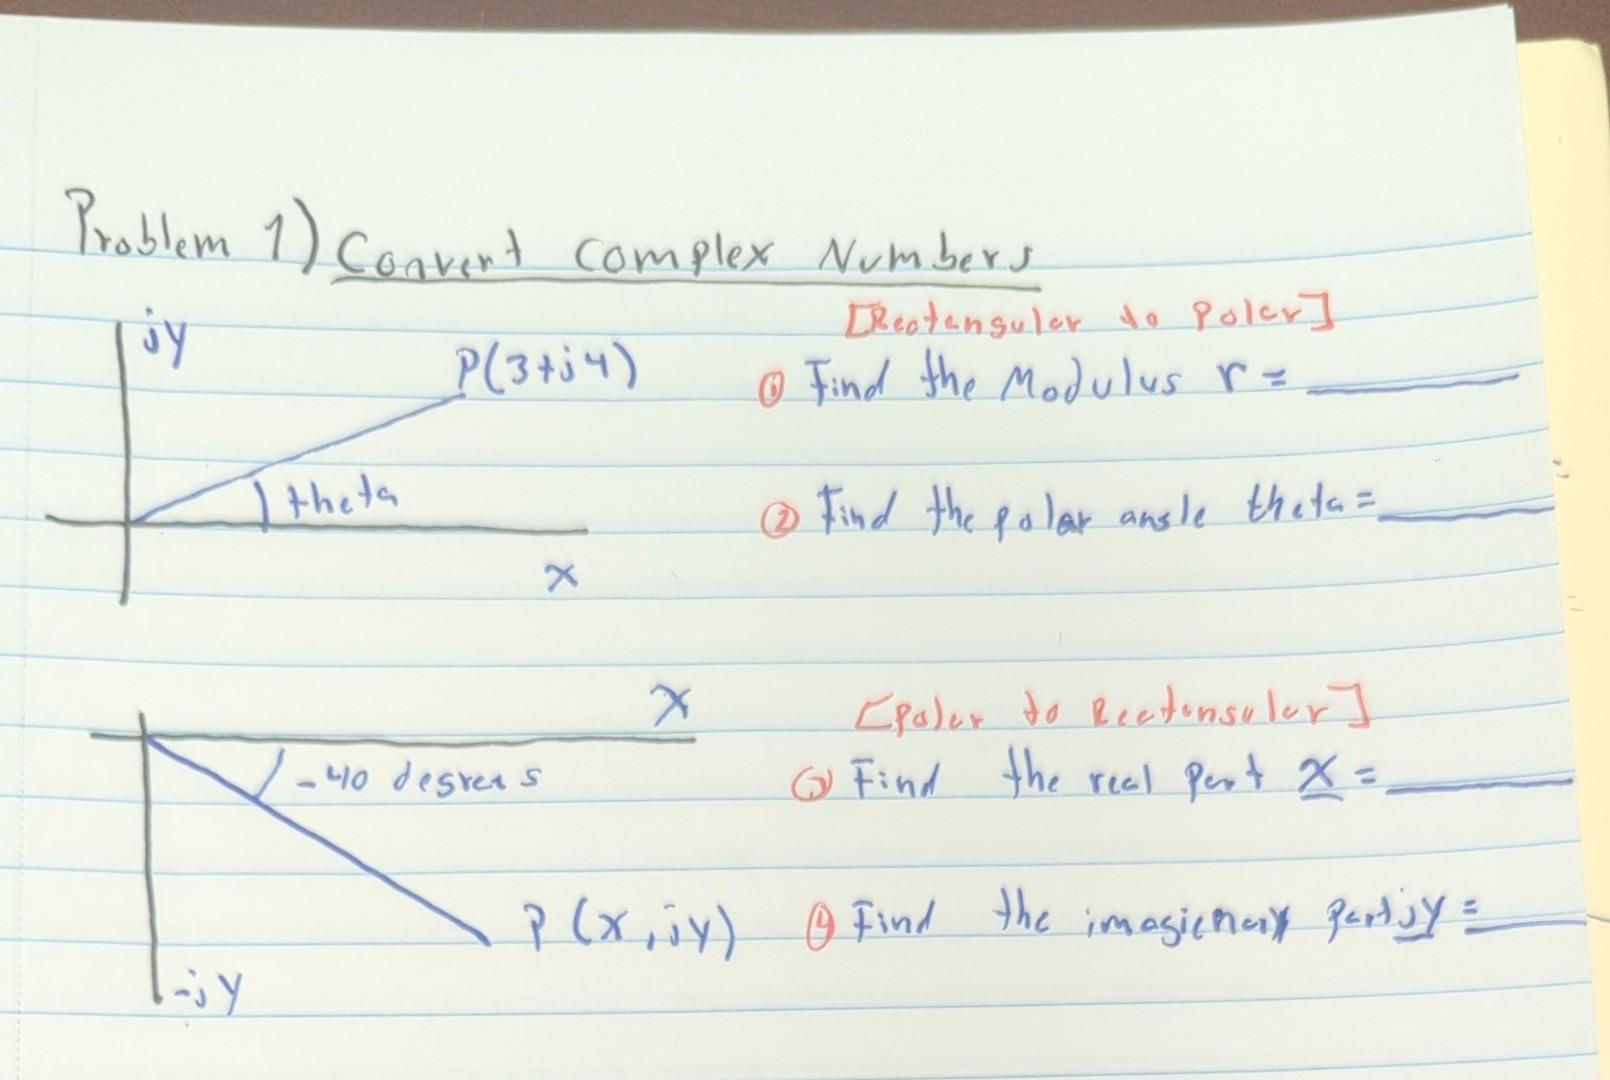 Problem 1) Convert Complex Numbers
[Rectangular to Polar]
jy
P(3+j4)
① Find the Modulus r = ______
theta
② Find the polar angle theta = ______
x
x
[Polar to Rectangular]
-40 degrees
③ Find the real part x = ______
P (x, jy)
④ Find the imagienary part jy = ______
-jy